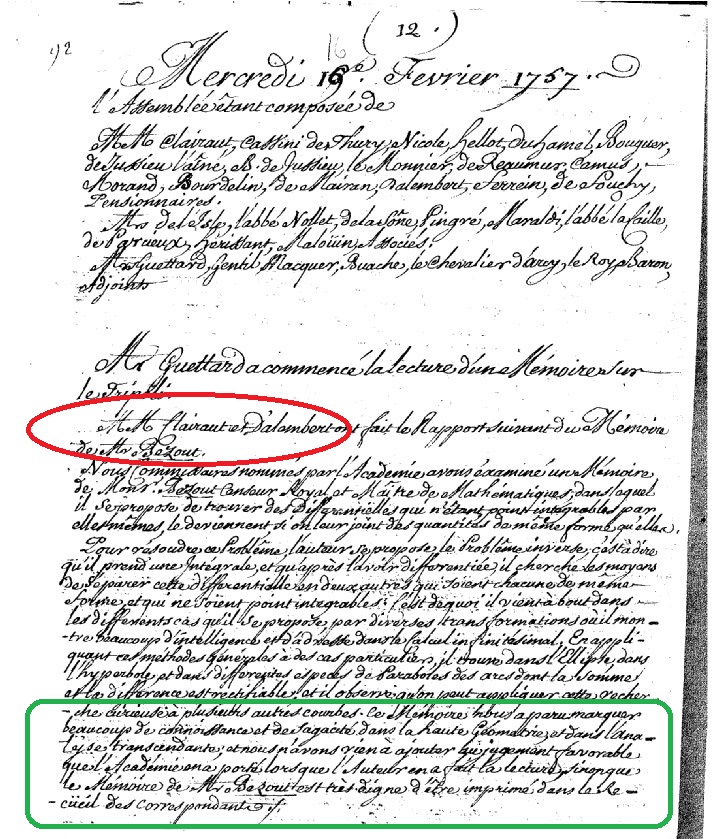 92
16
(12.)
Mercredi 16e. Fevrier 1757.
l'Assemblée étant composée de
MM Clairaut, Cassini de Thury, Nicole, Hellot, Duhamel, Bouguer,
de Jussieu l'aîné, B. de Jussieu, le Monnier, de Reaumur, Camus,
Morand, Bourdelin, de Mairan, Dalembert, Ferrein, de Fouchy,
Pensionnaires.
Mrs de l'Isle, l'abbé Nollet, de la Sône, Pingré, Maraldi, l'abbé la Caille,
de Parcieux, Hérissant, Malouin, Associés.
Mrs Guettard, Gentil, Macquer, Buache, le Chevalier d'arcy, le Roy, Baron,
Adjoints
Mr Guettard a commencé la lecture d'un Mémoire sur
le Tripoli.
MM Clairaut et D'alembert ont fait le Rapport suivant du Mémoire
de Mr. Bezout.
Nous Commissaires nommés par l'Académie avons éxaminé un Mémoire
de Monsr. Bezout Censeur Royal et Maître de Mathématiques, dans lequel
il se propose de trouver des Differentielles qui n'étant point intégrables par
elles mêmes, le deviennent si on leur joint des quantités de même forme qu'elles.
Pour résoudre ce Problême, l'auteur se propose le Problême inverse, c'est à dire
qu'il prend une Integrale, et qu'après l'avoir differentiée, il cherche les moyens
de séparer cette differentielle en deux autres qui soient chacune de même
forme, et qui ne soient point intégrables; c'est de quoi il vient à bout dans
les différents cas qu'il se propose par diverses transformations où il mon-
-tre beaucoup d'intelligence et d'adresse dans le calcul infinitésimal. En appli-
quant ces méthodes générales à des cas particuliers, il trouve dans l'Ellipse, dans
l'hyperbole et dans differentes especes de Paraboles des arcs dont la somme
et la différence est rectifiable, et il observe qu'on peut appliquer cette recher
-che curieuse à plusieurs autres courbes. Ce Mémoire nous a paru marquer
beaucoup de connoissance et de Sagacité dans la haute Géometrie, et dans l'Ana-
-lyse transcendante, et nous n'avons rien à ajouter au jugement favorable
que l'Académie en a porté, lorsque l'Auteur en a fait la lecture, sinon que
le Mémoire de Mr. Bezout est très digne d'être imprimé dans le Re-
-cüeil des Correspondants